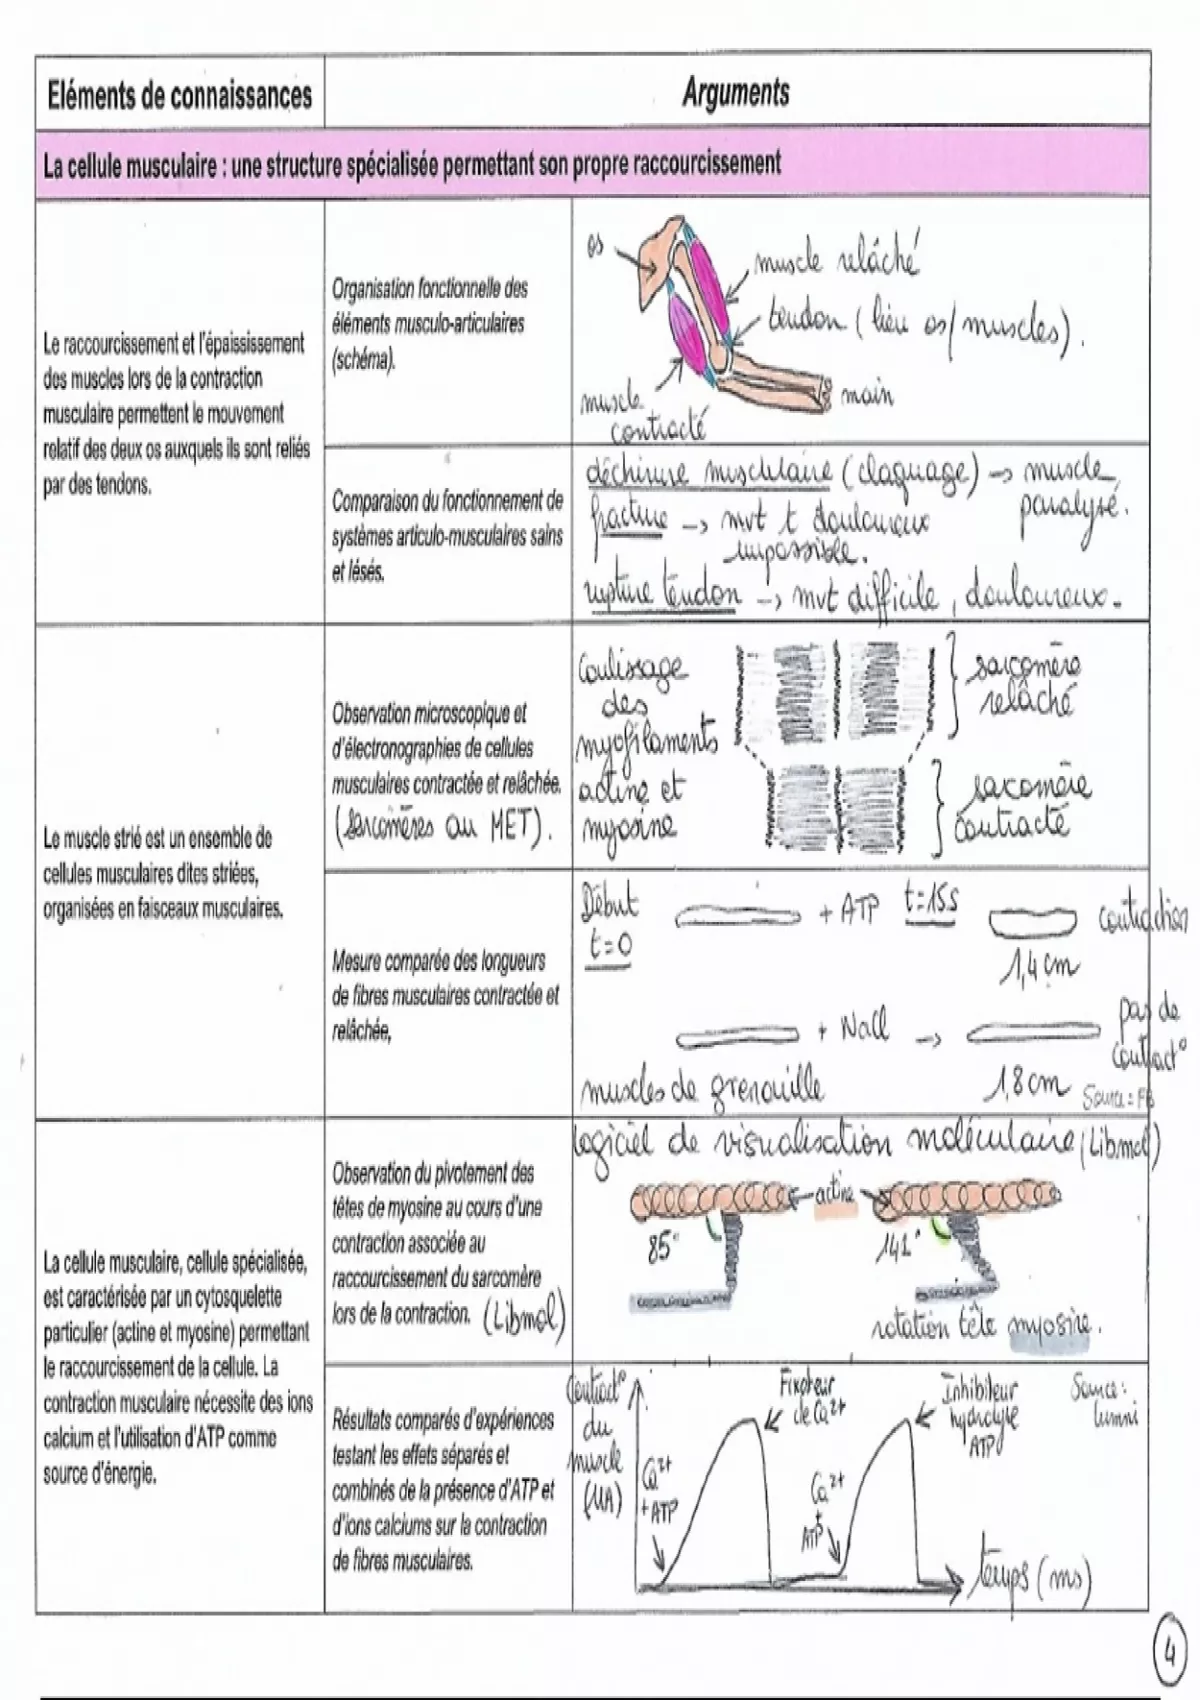 Eléments de connaissances
Arguments
La cellule musculaire : une structure spécialisée permettant son propre raccourcissement
Le raccourcissement et l'épaississement
des muscles lors de la contraction
musculaire permettent le mouvement
relatif des deux os auxquels ils sont reliés
par des tendons.
Organisation fonctionnelle des
éléments musculo-articulaires
(schéma).
os
muscle relâché
tendon (lieu os/muscles).
main
muscle
contracté
Comparaison du fonctionnement de
systèmes articulo-musculaires sains
et lésés.
déchirure musculaire (claquage) -> muscle
paralysé.
fracture -> mvt t douloureux
impossible.
rupture tendon -> mvt difficile, douloureux.
Le muscle strié est un ensemble de
cellules musculaires dites striées,
organisées en faisceaux musculaires.
Observation microscopique et
d'électronographies de cellules
musculaires contractée et relâchée.
(sarcomères au MET).
Coulissage
des
myofilaments
actine et
myosine
sarcomère
relâché
sarcomère
contracté
Mesure comparée des longueurs
de fibres musculaires contractée et
relâchée,
Début
t=0
+ ATP
t=15s
contraction
1,4 cm
+ NaCl ->
pas de
contract°
muscles de grenouille
1,8 cm
Source = FB
La cellule musculaire, cellule spécialisée,
est caractérisée par un cytosquelette
particulier (actine et myosine) permettant
le raccourcissement de la cellule. La
contraction musculaire nécessite des ions
calcium et l'utilisation d'ATP comme
source d'énergie.
Observation du pivotement des
têtes de myosine au cours d'une
contraction associée au
raccourcissement du sarcomère
lors de la contraction. (Libmol)
logiciel de visualisation moléculaire (Libmol)
actine
85°
141°
rotation tête myosine.
Résultats comparés d'expériences
testant les effets séparés et
combinés de la présence d'ATP et
d'ions calciums sur la contraction
de fibres musculaires.
Contract°
du
muscle
(UA)
Ca2+
+ATP
Fixateur
de Ca2+
Ca2+
+
ATP
Inhibiteur
hydrolyse
ATP
Source :
lumni
temps (ms)
4